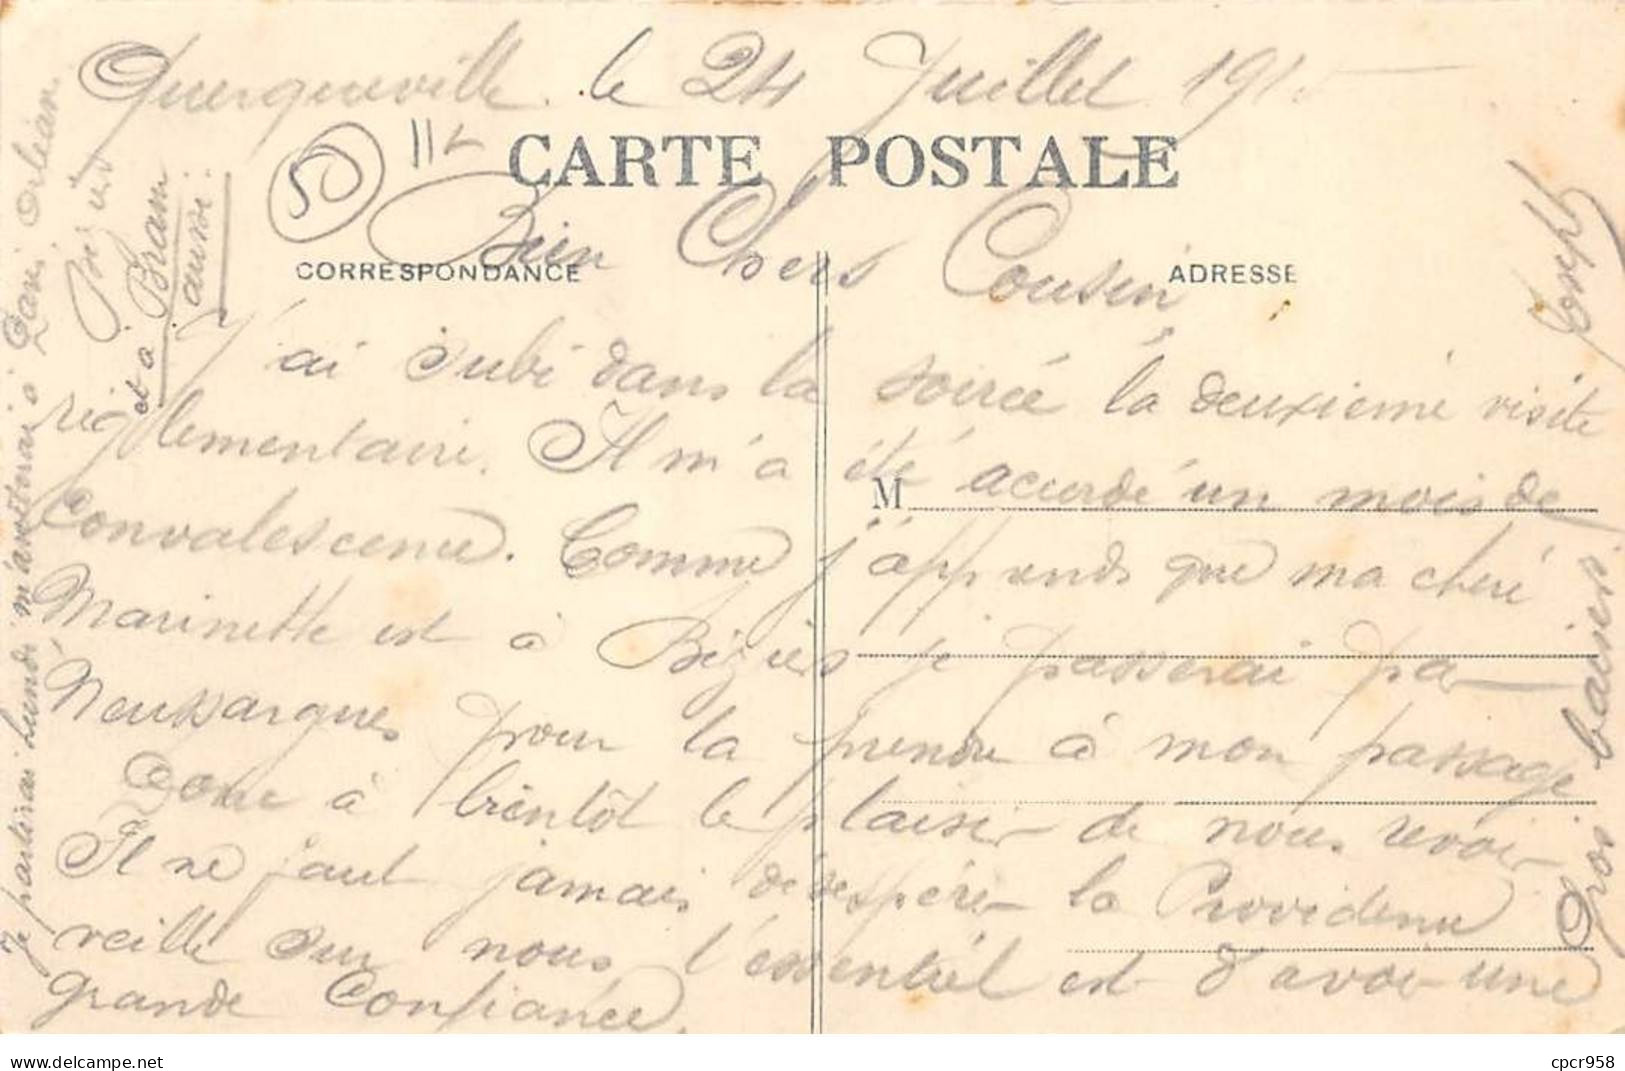 Querqueville. le 24 Juillet 1915
50
CARTE POSTALE
Bien Chers Cousin
CORRESPONDANCE
ADRESSE
J'ai subi dans la soirée la deuxième visite
réglementaire. Il m'a été accordé un mois de
M
Convalescence. Comme j'apprends que ma cheré
Marinette est à Béziers je passerai par
Neussargues pour la prendre à mon passage
Donc à bientôt le plaisir de nous revoir
Il ne faut jamais désespérer la Providence
veille sur nous l'essentiel est d'avoir une
grande Confiance.
Gros baisers
Joseph
Je partirai Lundi m'arrêterai à Paris Orlean
Béziers
et a Bram
aussi.
cpcr958